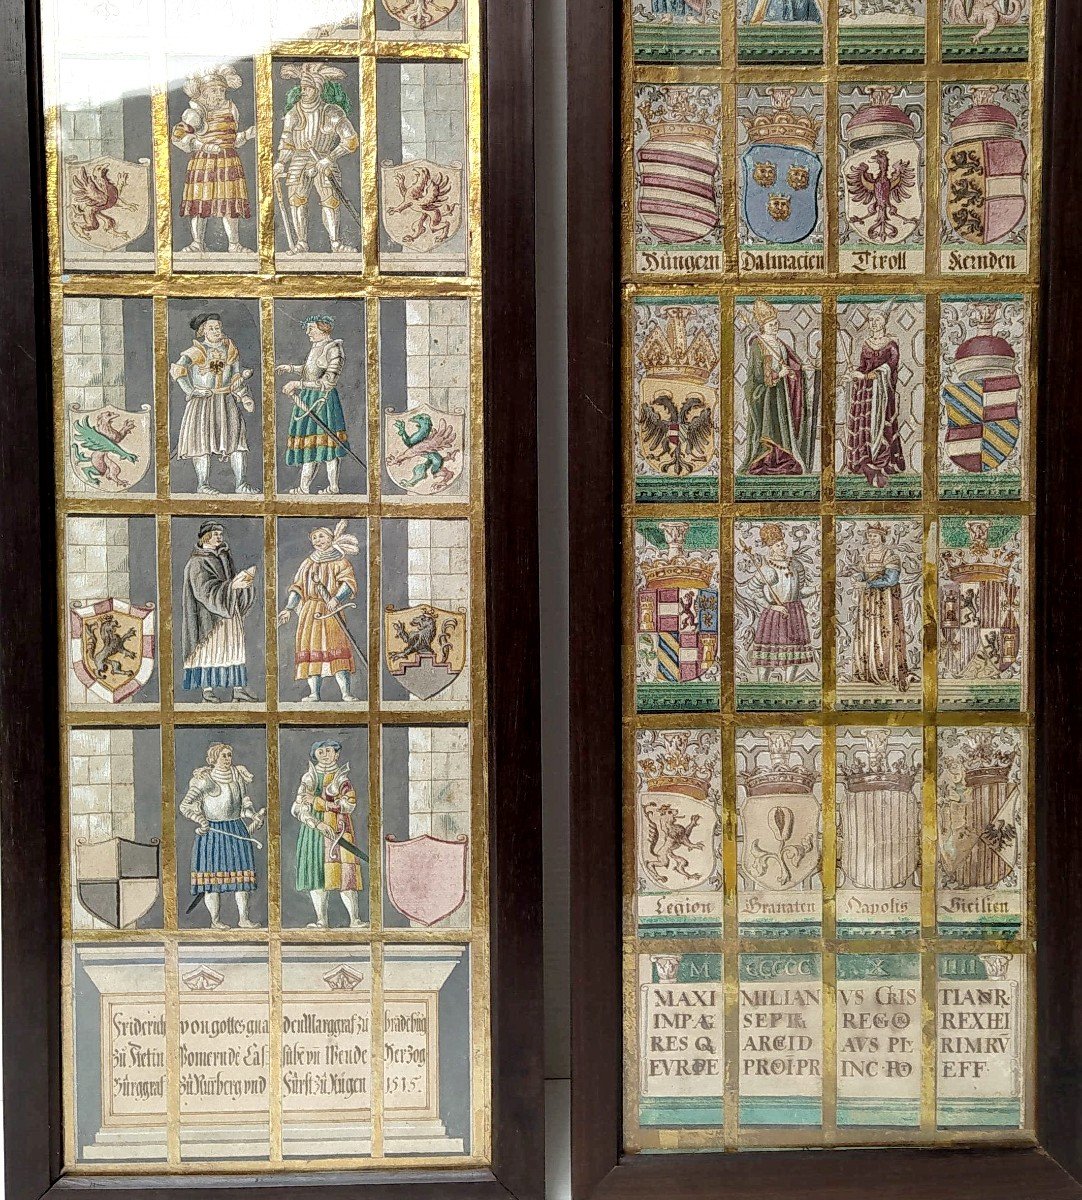 Friderich von gottes gna den Marggraf zu brādebūg
zū Stetin Pomern dē Cas sube vn̄ Wende Herzog
Būrggraf zū Nūrberg vnd Fūrst zū Rūgen 1515.
Hūngern Dalmacien Tiroll Kernden
Legion Granaten Napolis Sicilien
M CCCCC X IIII
MAXI MILIAN VS CRIS TIANR
IMPÆ SEP REG REXHEI
RES Q ARCID AVS PI RIMRV
EVRDE PROIPR INC PO EFF